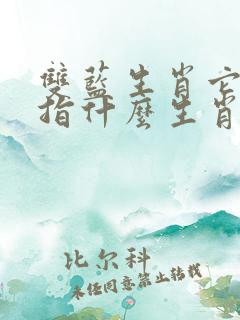 雙藍生肖它
指什麼生肖
比尔科
未经同意禁止转载